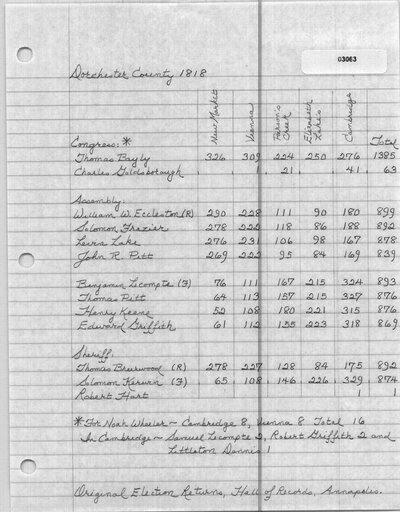 03063
Dorchester County 1818
New Market Vienna Parson's Creek Elizabeth Lake's Cambridge
Congress: * Total
Thomas Bayly 326 309 224 250 276 1385
Charles Goldsborough 1 21 41 63
Assembly:
William W. Eccleston (R) 290 228 111 90 180 899
Solomon Frazier 278 222 118 86 188 892
Levin Lake 276 231 106 98 167 878
John R. Pitt 269 222 95 84 169 839
Benjamin Lecompte (F) 76 111 167 215 324 893
Thomas Pitt 64 113 157 215 327 876
Henry Keene 52 108 180 221 315 876
Edward Griffith 61 112 155 223 318 869
Sheriff:
Thomas Brerwood (R) 278 227 128 84 175 892
Solomon Kerwin (F) 65 108 146 226 329 874
Robert Hart 1 1
* For Noah Wheeler ~ Cambridge 8, Vienna 8 Total 16
In Cambridge ~ Samuel Lecompte 2, Robert Griffith 2 and
Littleton Dennis 1
Original Election Returns, Hall of Records, Annapolis.